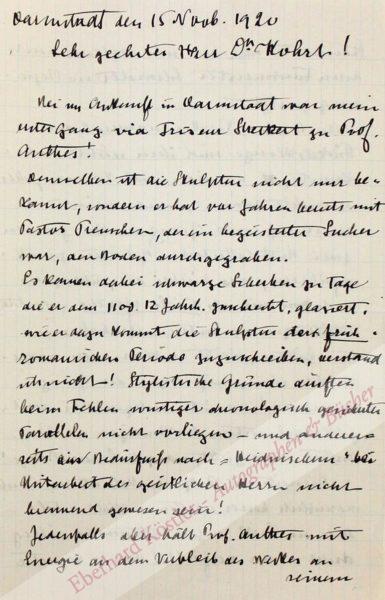 Darmstadt den 15 Novb. 1920
Sehr geehrter Herr Dr. Kohrt!
Bei m. Ankunft in Darmstadt war mein
erster Gang via Friseur zu Prof.
Anthes!
Demselben ist die Skulptur nicht nur be-
kannt, sondern er hat vor Jahren bereits mit
Pastor, der ein begeisterter Sucher
war, den Boden durchgegraben.
Es kamen dabei schwarze Scherben zu Tage
die er dem 11 od. 12 Jahrh. zuschreibt, glasiert.
wie er dazu kommt die Skulptur der früh-
romanischen Periode zuzuschreiben, verstand
ich nicht! Stylistische Gründe dürften
beim Fehlen sonstiger chronologisch gesicherter
Parallelen nicht vorliegen – und anderer-
seits das Bedürfnis nach "Heidnischem" bei
Mitarbeit des geistlichen Herrn nicht
brennend gewesen sein!
Jedenfalls aber hält Prof. Anthes mit
Energie an dem Verbleib des Werkes an
seinem
Eberhard Köstler Autographen & Bücher